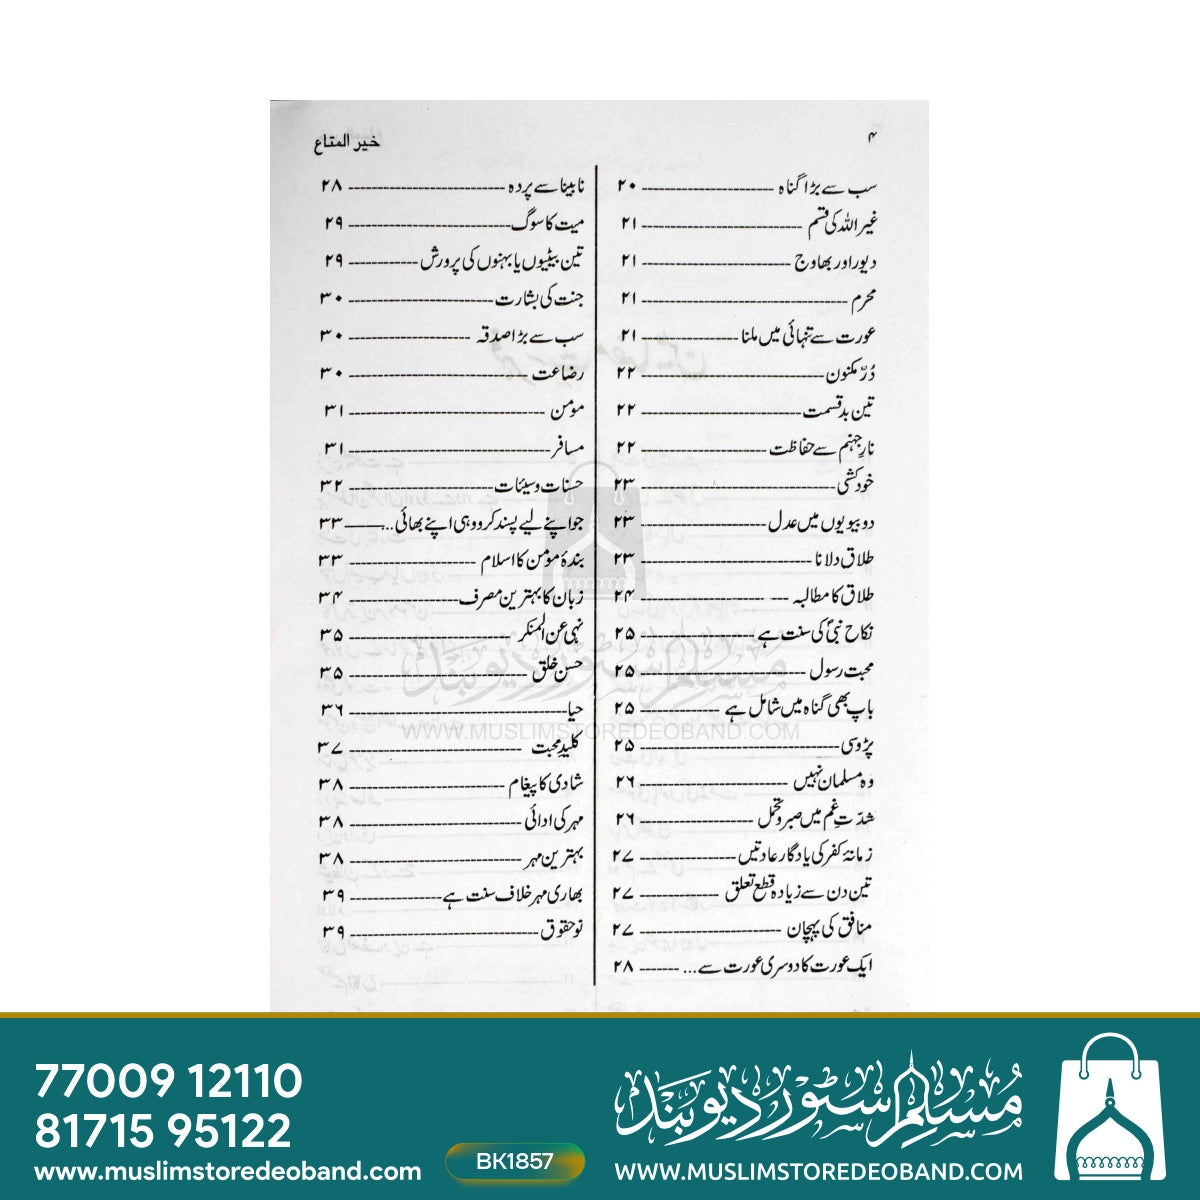 ۴
خیر المتاع
سب سے بڑا گناہ ۲۰
غیر اللہ کی قسم ۲۱
دیور اور بھاوج ۲۱
محرم ۲۱
عورت سے تنہائی میں ملنا ۲۱
دُرِّ مکنون ۲۲
تین بد قسمت ۲۲
نارِ جہنم سے حفاظت ۲۲
خودکشی ۲۳
دو بیویوں میں عدل ۲۳
طلاق دلانا ۲۳
طلاق کا مطالبہ ۲۴
نکاح نبیؐ کی سنت ہے ۲۵
محبت رسول ۲۵
باپ بھی گناہ میں شامل ہے ۲۵
پڑوسی ۲۵
وہ مسلمان نہیں ۲۶
شدّتِ غم میں صبر و تحمل ۲۶
زمانۂ کفر کی یادگار عادتیں ۲۷
تین دن سے زیادہ قطع تعلق ۲۷
منافق کی پہچان ۲۷
ایک عورت کا دوسری عورت سے... ۲۸
نابینا سے پردہ ۲۸
میت کا سوگ ۲۹
تین بیٹیوں یا بہنوں کی پرورش ۲۹
جنت کی بشارت ۳۰
سب سے بڑا صدقہ ۳۰
رضاعت ۳۰
مومن ۳۱
مسافر ۳۱
حسنات و سیئات ۳۲
جو اپنے لیے پسند کرو وہی اپنے بھائی... ۳۳
بندۂ مومن کا اسلام ۳۳
زبان کا بہترین مصرف ۳۴
نہی عن المنکر ۳۵
حسن خلق ۳۵
حیا ۳۶
کلیدِ محبت ۳۷
شادی کا پیغام ۳۸
مہر کی ادائی ۳۸
بہترین مہر ۳۸
بھاری مہر خلاف سنت ہے ۳۹
نو حقوق ۳۹
مسلم سٹور دیوبند
WWW.MUSLIMSTOREDEOBAND.COM
77009 12110
81715 95122
www.muslimstoredeoband.com
BK1857
مُسلم سٹور دیوبند
WWW.MUSLIMSTOREDEOBAND.COM